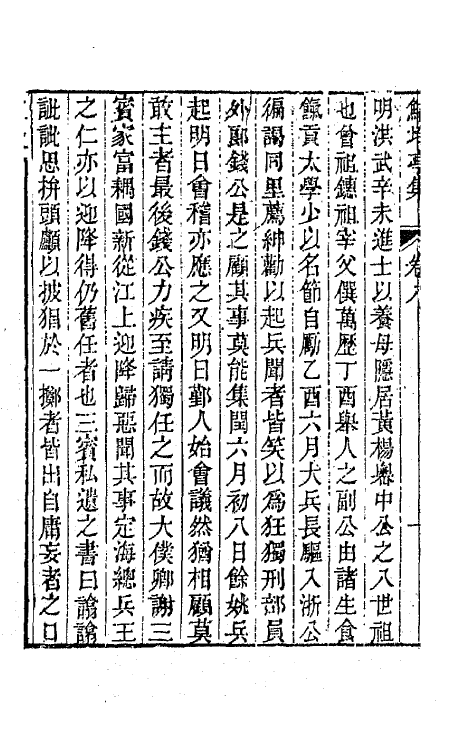 鮚埼亭集 卷八 一
明洪武辛未進士以養母隱居黃楊嶴中公之八世祖
也曾祖鏸祖宰父僎萬歷丁酉舉人之副公由諸生食
餼貢太學少以名節自勵乙酉六月大兵長驅入浙公
徧謁同里薦紳勸以起兵聞者皆笑以為狂獨刑部員
外郞錢公是之顧其事莫能集閏六月初八日餘姚兵
起明日會稽亦應之又明日鄞人始會議然猶相顧莫
敢主者最後錢公力疾至請獨任之而故太僕卿謝三
賓家富耦國新從江上迎降歸惡聞其事定海總兵王
之仁亦以迎降得仍舊任者也三賓私遺之書曰譑譑
訿訿思拚頭顱以披猖於一擲者皆出自庸妄者之口